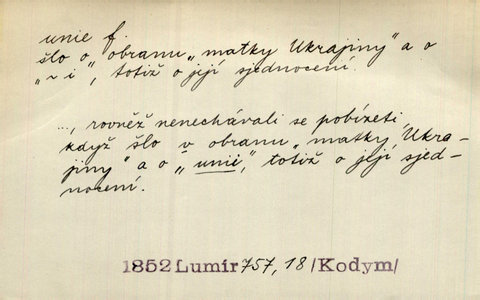 unie f.
šlo o „obranu „matky Ukrajiny" a o
„~i", totiž o její sjednocení.
..., rovněž nenechávali se pobízeti,
když šlo v obranu „matky Ukra-
jiny" a o „unii", totiž o její sjed-
nocení.
1852 Lumír 757, 18 /Kodym/